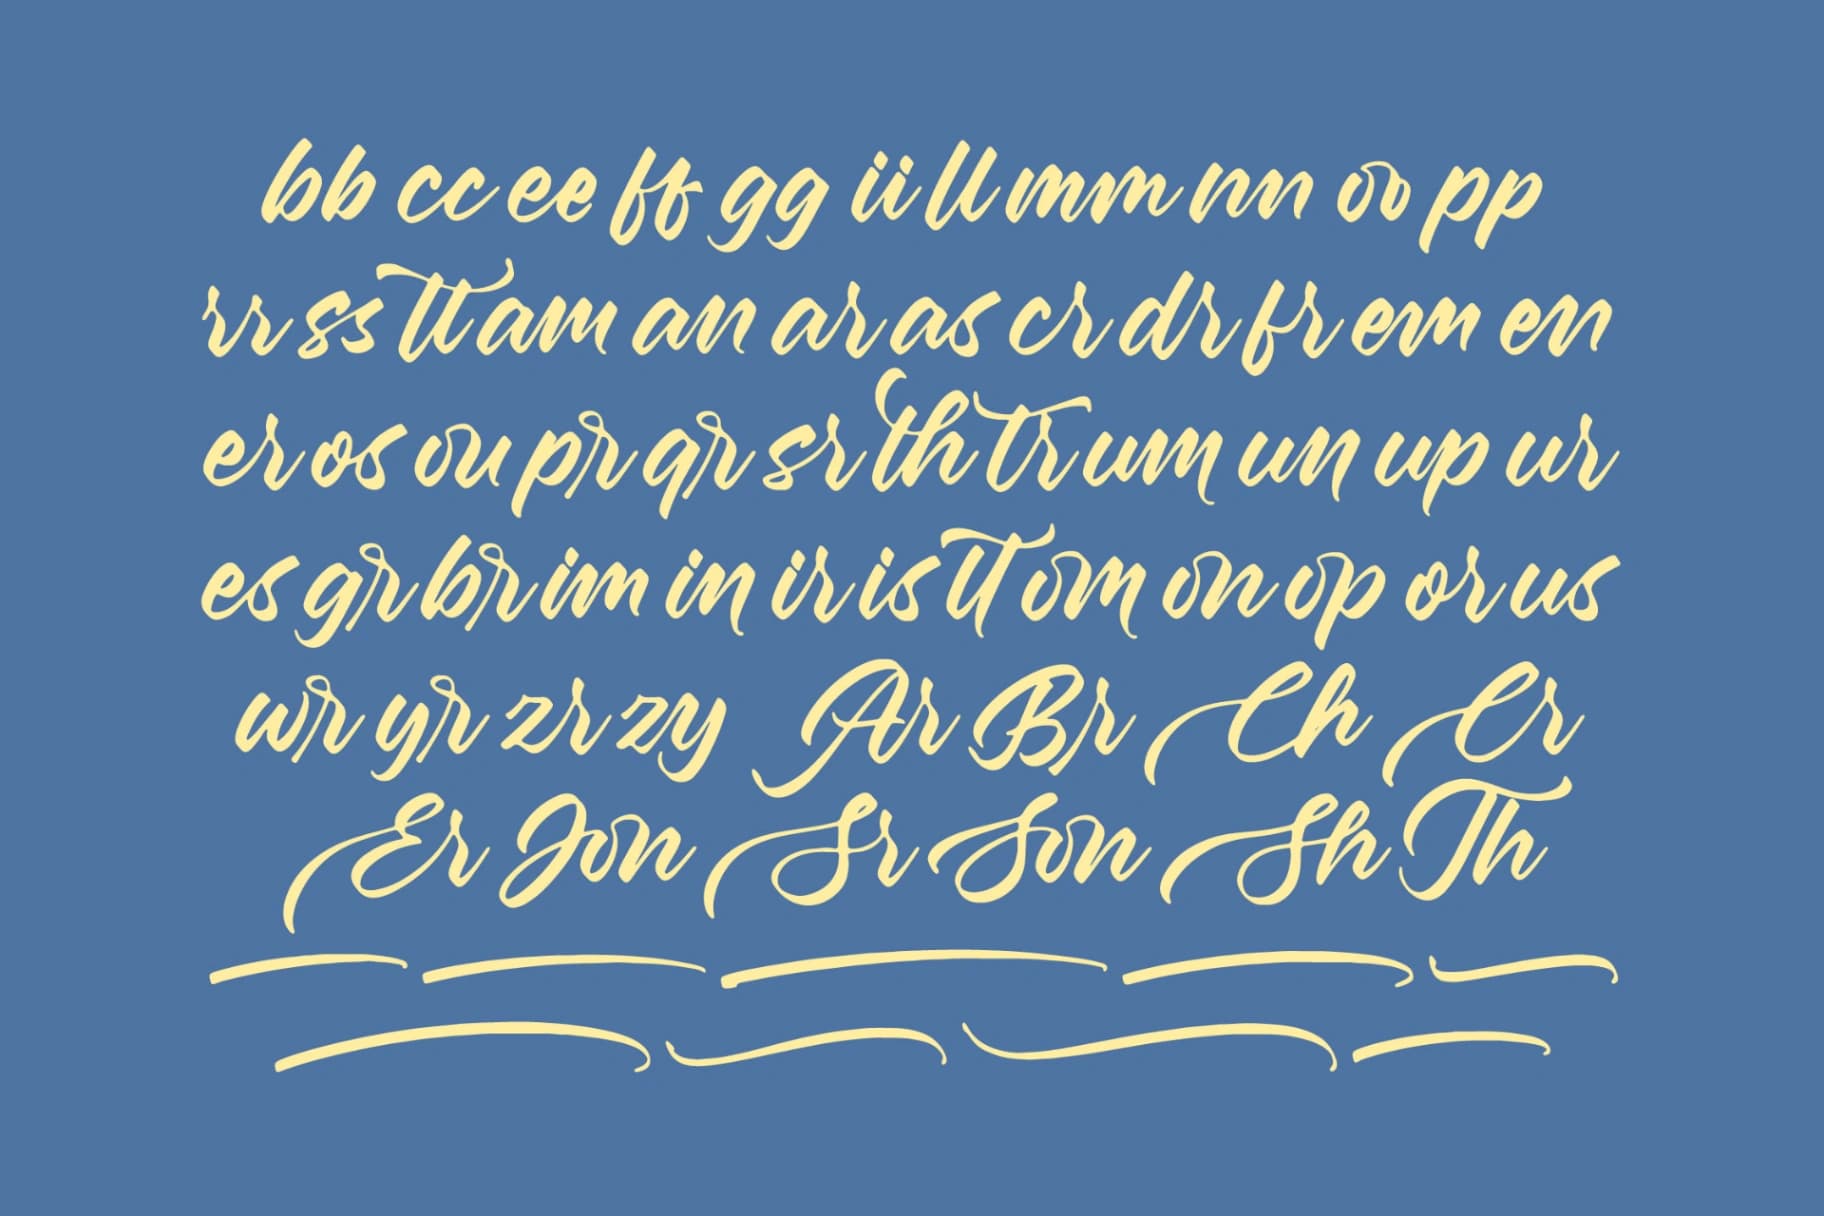 bb cc ee ff gg ii ll mm nn oo pp
rr ss tt am an ar as cr dr fr em en
er os ou pr qr sr th tr um un up ur
es gr br im in ir is tt om on op or us
wr yr zr zy Ar Br Ch Cr
Er Jon Sr Son Sh Th